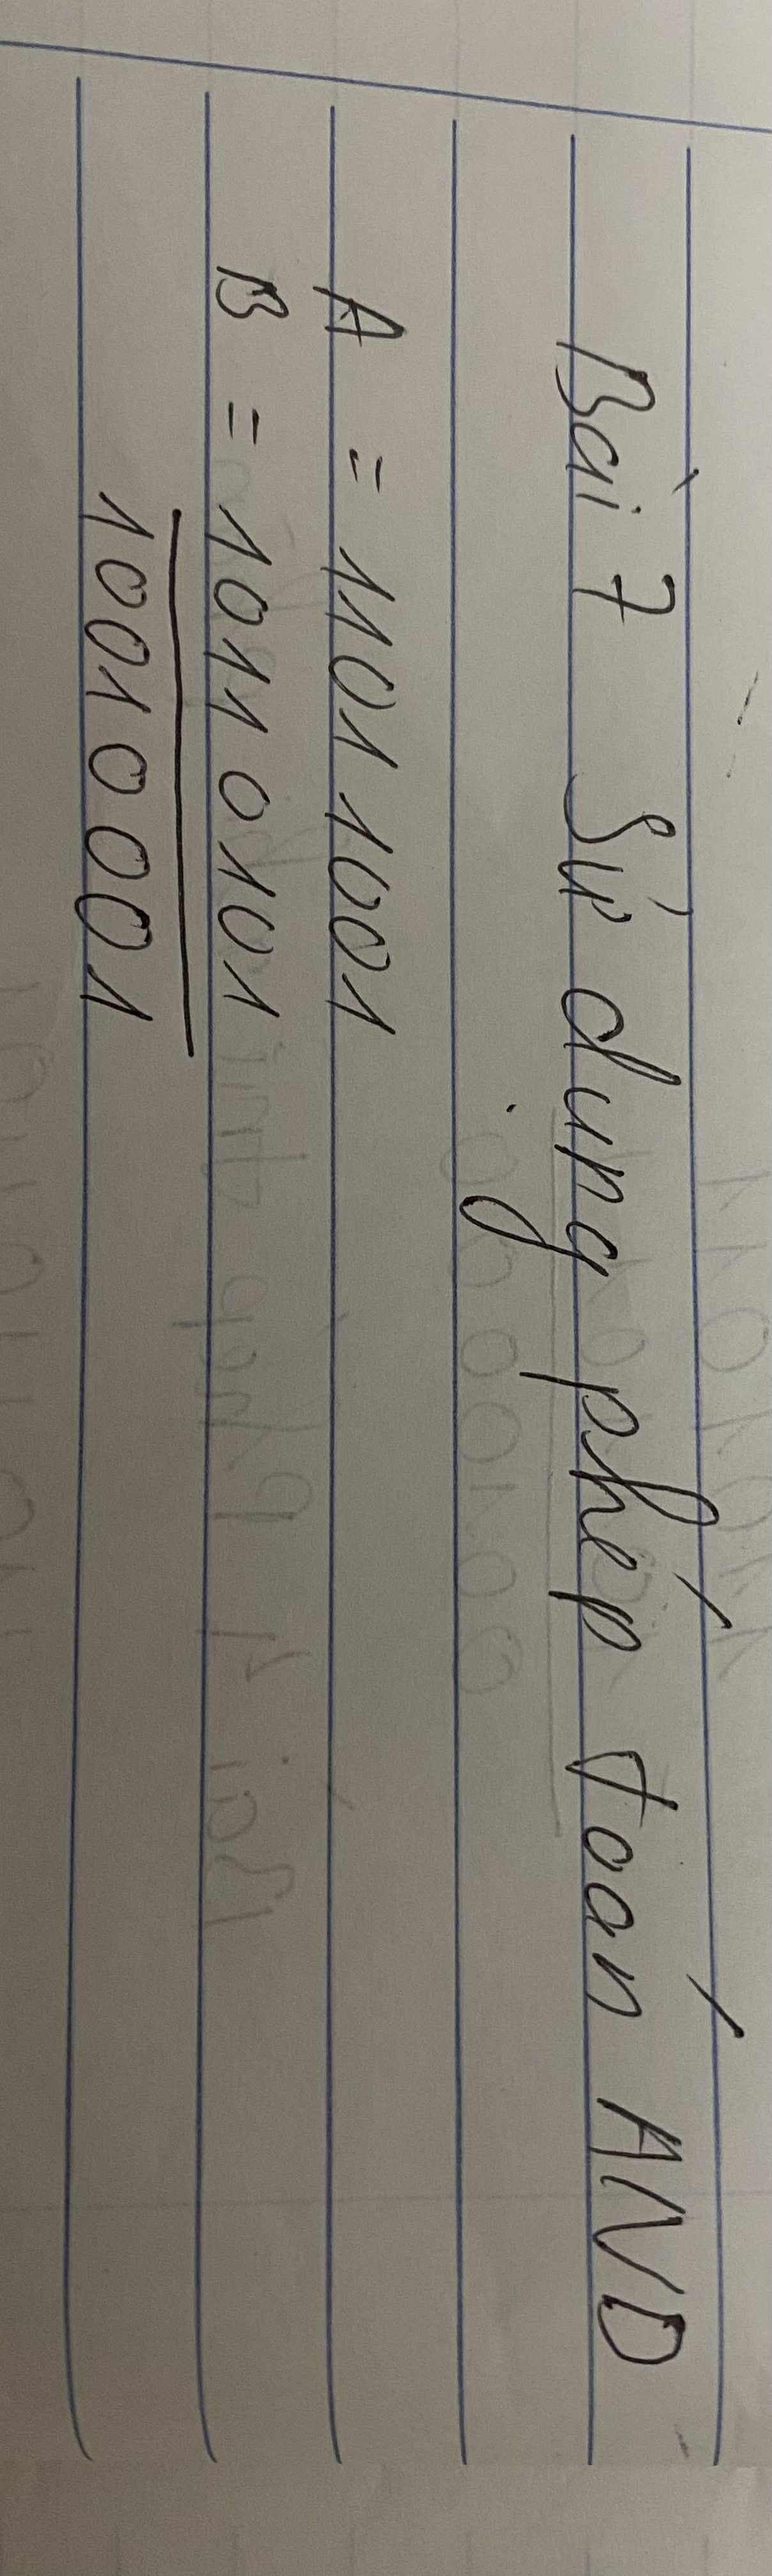 Bài 7 Sử dụng phép toán AND
A = 1101 1001
B = 1011 0101
1001 0001